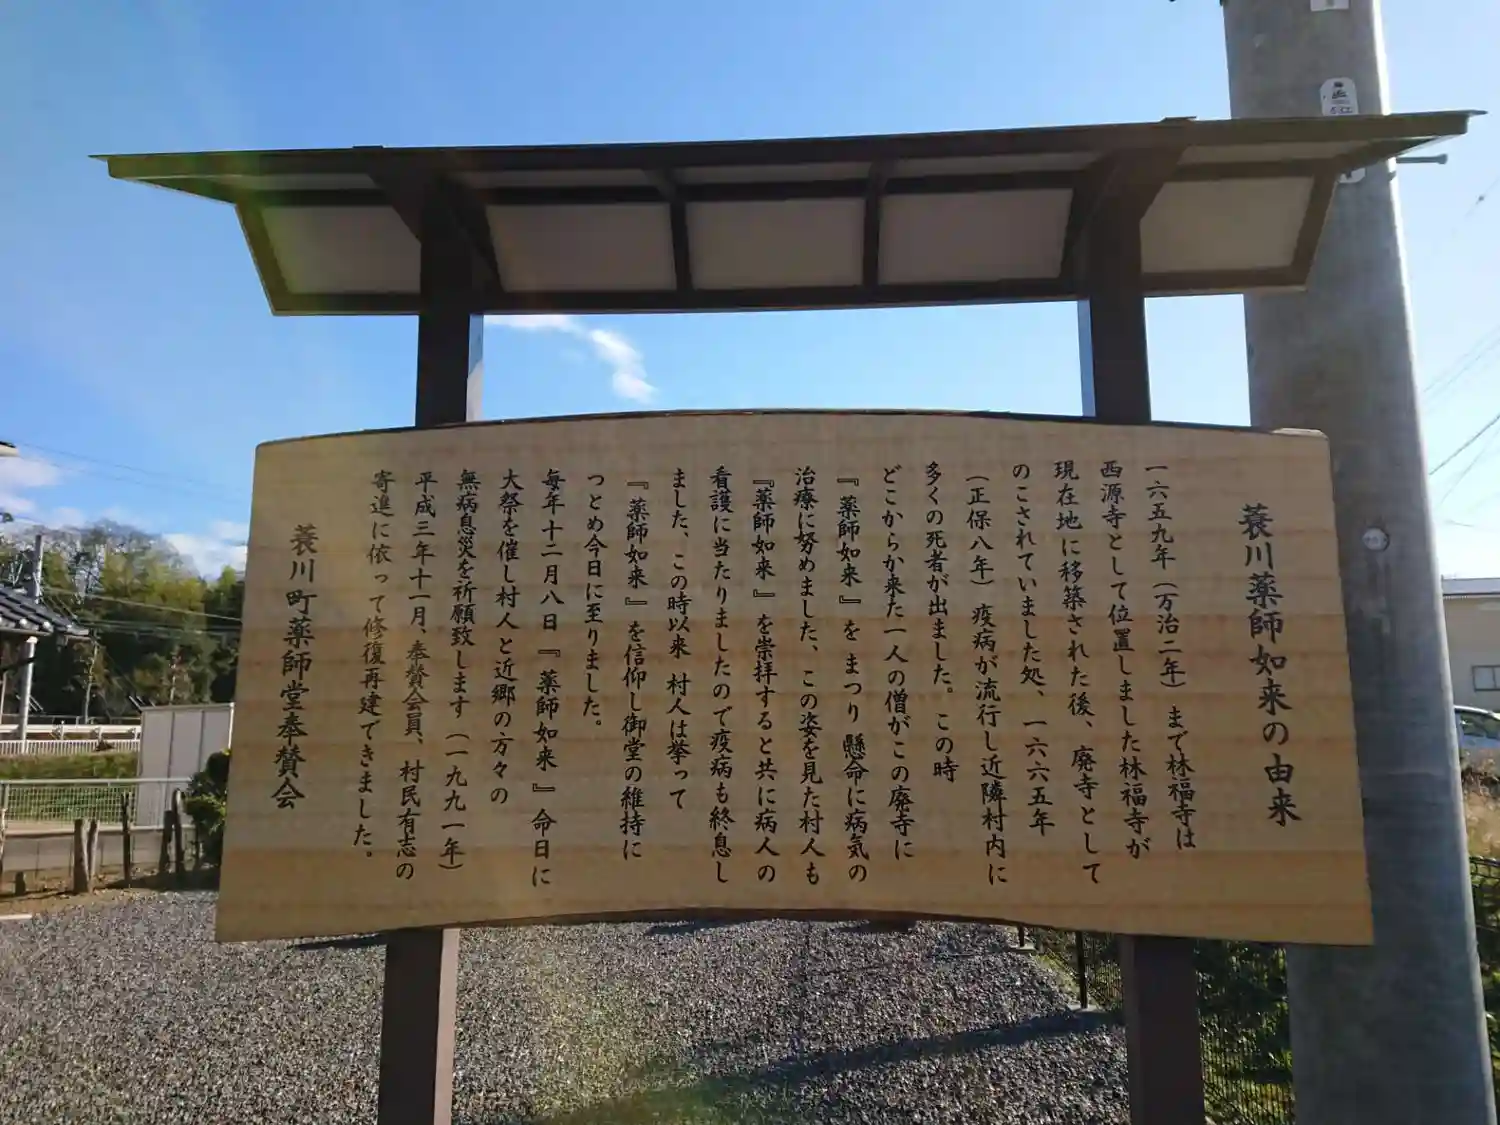 蓑川薬師如来の由来
一六五九年（万治二年）まで林福寺は
西源寺として位置しました林福寺が
現在地に移築された後、廃寺として
のこされていました処、一六六五年
（正保八年）疫病が流行し近隣村内に
多くの死者が出ました。この時
どこからか来た一人の僧がこの廃寺に
『薬師如来』をまつり懸命に病気の
治療に努めました、この姿を見た村人も
『薬師如来』を崇拝すると共に病人の
看護に当たりましたので疫病も終息し
ました、この時以来 村人は挙って
『薬師如来』を信仰し御堂の維持に
つとめ今日に至りました。
毎年十二月八日『薬師如来』命日に
大祭を催し村人と近郷の方々の
無病息災を祈願致します（一九九一年）
平成三年十一月、奉賛会員、村民有志の
寄進に依って修復再建できました。
蓑川町薬師堂奉賛会